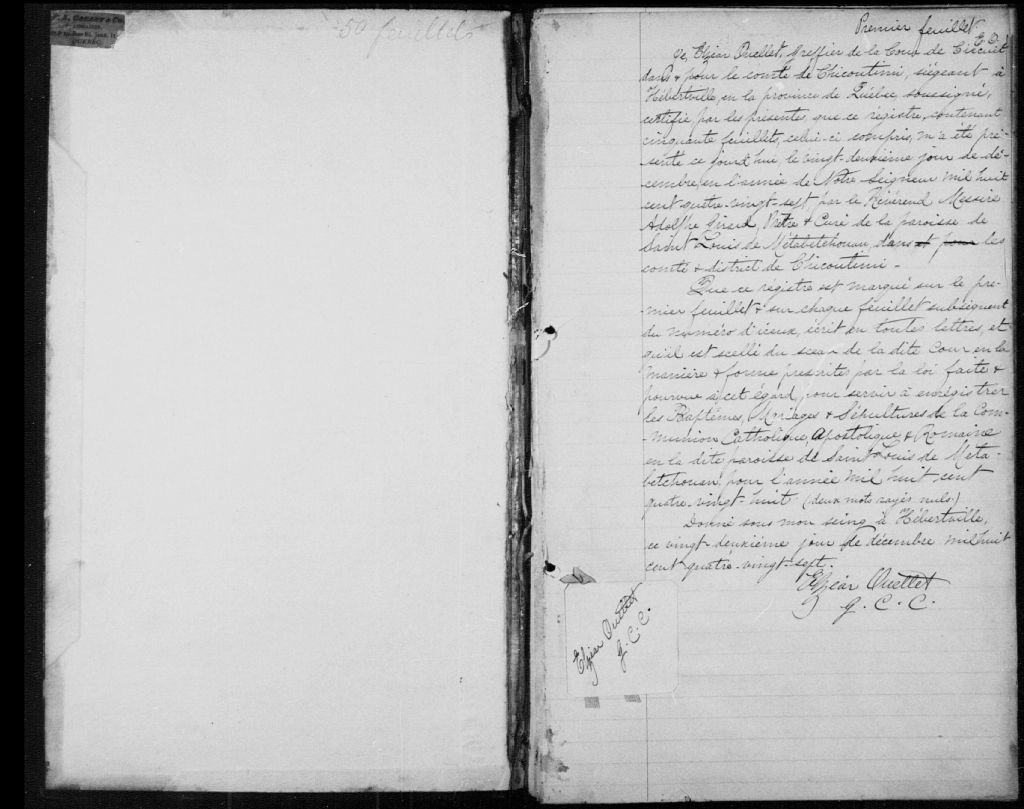 50 feuillets
QUÉBEC.
Premier feuillet
E. O.
Je, Elzéar Ouellet, greffier de la Cour de Circuit
dans & pour le comté de Chicoutimi, siégeant à
Hébertville, en la province de Québec, soussigné,
certifie, par les présentes, que ce régistre, contenant
cinquante feuillets, celui-ci compris, m'a été pré-
senté ce jourd'hui, le vingt-deuxième jour de dé-
cembre, en l'année de Notre Seigneur mil huit
cent quatre-vingt-sept par le Révérend Messire
Adolphe Girard, Prêtre & Curé de la paroisse de
Saint Louis de Métabetchouan, dans et pour les
comté & district de Chicoutimi -
Que ce régistre est marqué sur le pre-
mier feuillet & sur chaque feuillet subséquent
du numéro d'iceux, écrit en toutes lettres, et
qu'il est scellé du sceau de la dite Cour, en la
manière & forme prescrites par la loi faite &
pourvue à cet égard, pour servir à enrégistrer
les Baptêmes, Mariages & Sépultures de la Com-
-munion Catholique, Apostolique & Romaine
en la dite paroisse de Saint Louis de Méta-
betchouan, pour l'année mil huit cent
quatre-vingt-huit (deux mots rayés nuls.)
Donné sous mon seing à Hébertville,
ce vingt-deuxième jour de décembre mil huit
cent quatre-vingt-sept.
Elzéar Ouellet
g. C. C.
Elzéar Ouellet
g. C. C.